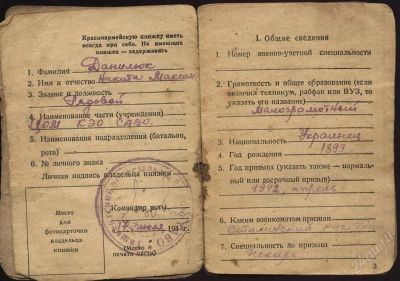 Красноармейскую книжку иметь
всегда при себе. Не имеющих
книжек — задерживать
1. Фамилия Данилюк
2. Имя и отчество Никита Максим
3. Звание и должность
Рядовой
4. Наименование части (учреждения)
КЭО САВО
5. Наименование подразделения (батальон,
рота)
6. № личного знака
Личная подпись владельца книжки
Место
для
фотокарточки
владельца
книжки
Командир роты
17 июля 194
(Место
печати части)
I. Общие сведения
1. Номер военно-учетной специальности
2. Грамотность и общее образование (если
окончил техникум, рабфак или ВУЗ, то
указать его название)
Малограмотный
3. Национальность Украинец
4. Год рождения 1899
5. Год призыва (указать также — нормаль-
ный или досрочный призыв)
1942, апрель
6. Каким военкоматом призван
Сталинский
7. Специальность до призыва
Пекарь
3